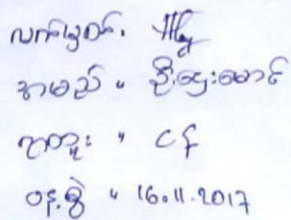 လက်မှတ်။
အမည် ။ ဦးဌေးမောင်
ရာထူး ။ ငန်
ဝန့်စွဲ ။ 16.11.2017